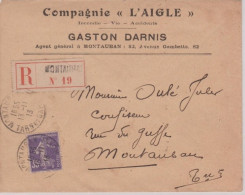 Compagnie « L'AIGLE »
Incendie - Vie - Accidents
GASTON DARNIS
Agent général à MONTAUBAN - 52, Avenue Gambetta, 52
R
MONTAUBAN
N° 19
Monsieur Oulé Jules
Confiseur
rue du
Montauban